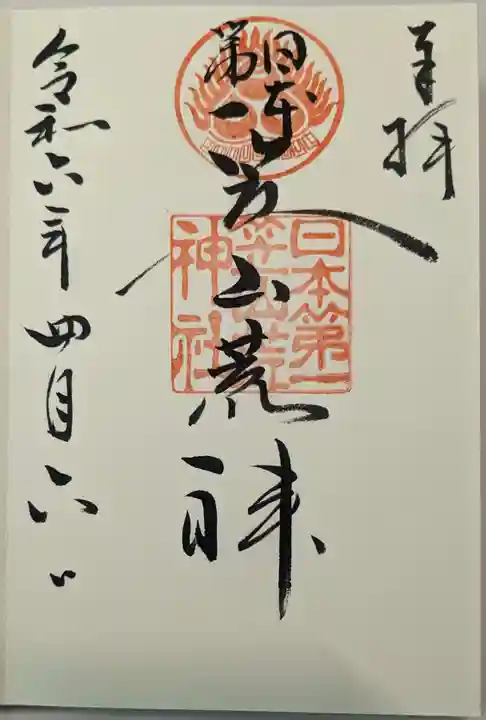 奉拝
日本
第一
笠山荒神
日本第一
笠山荒
神社
令和六年四月六日